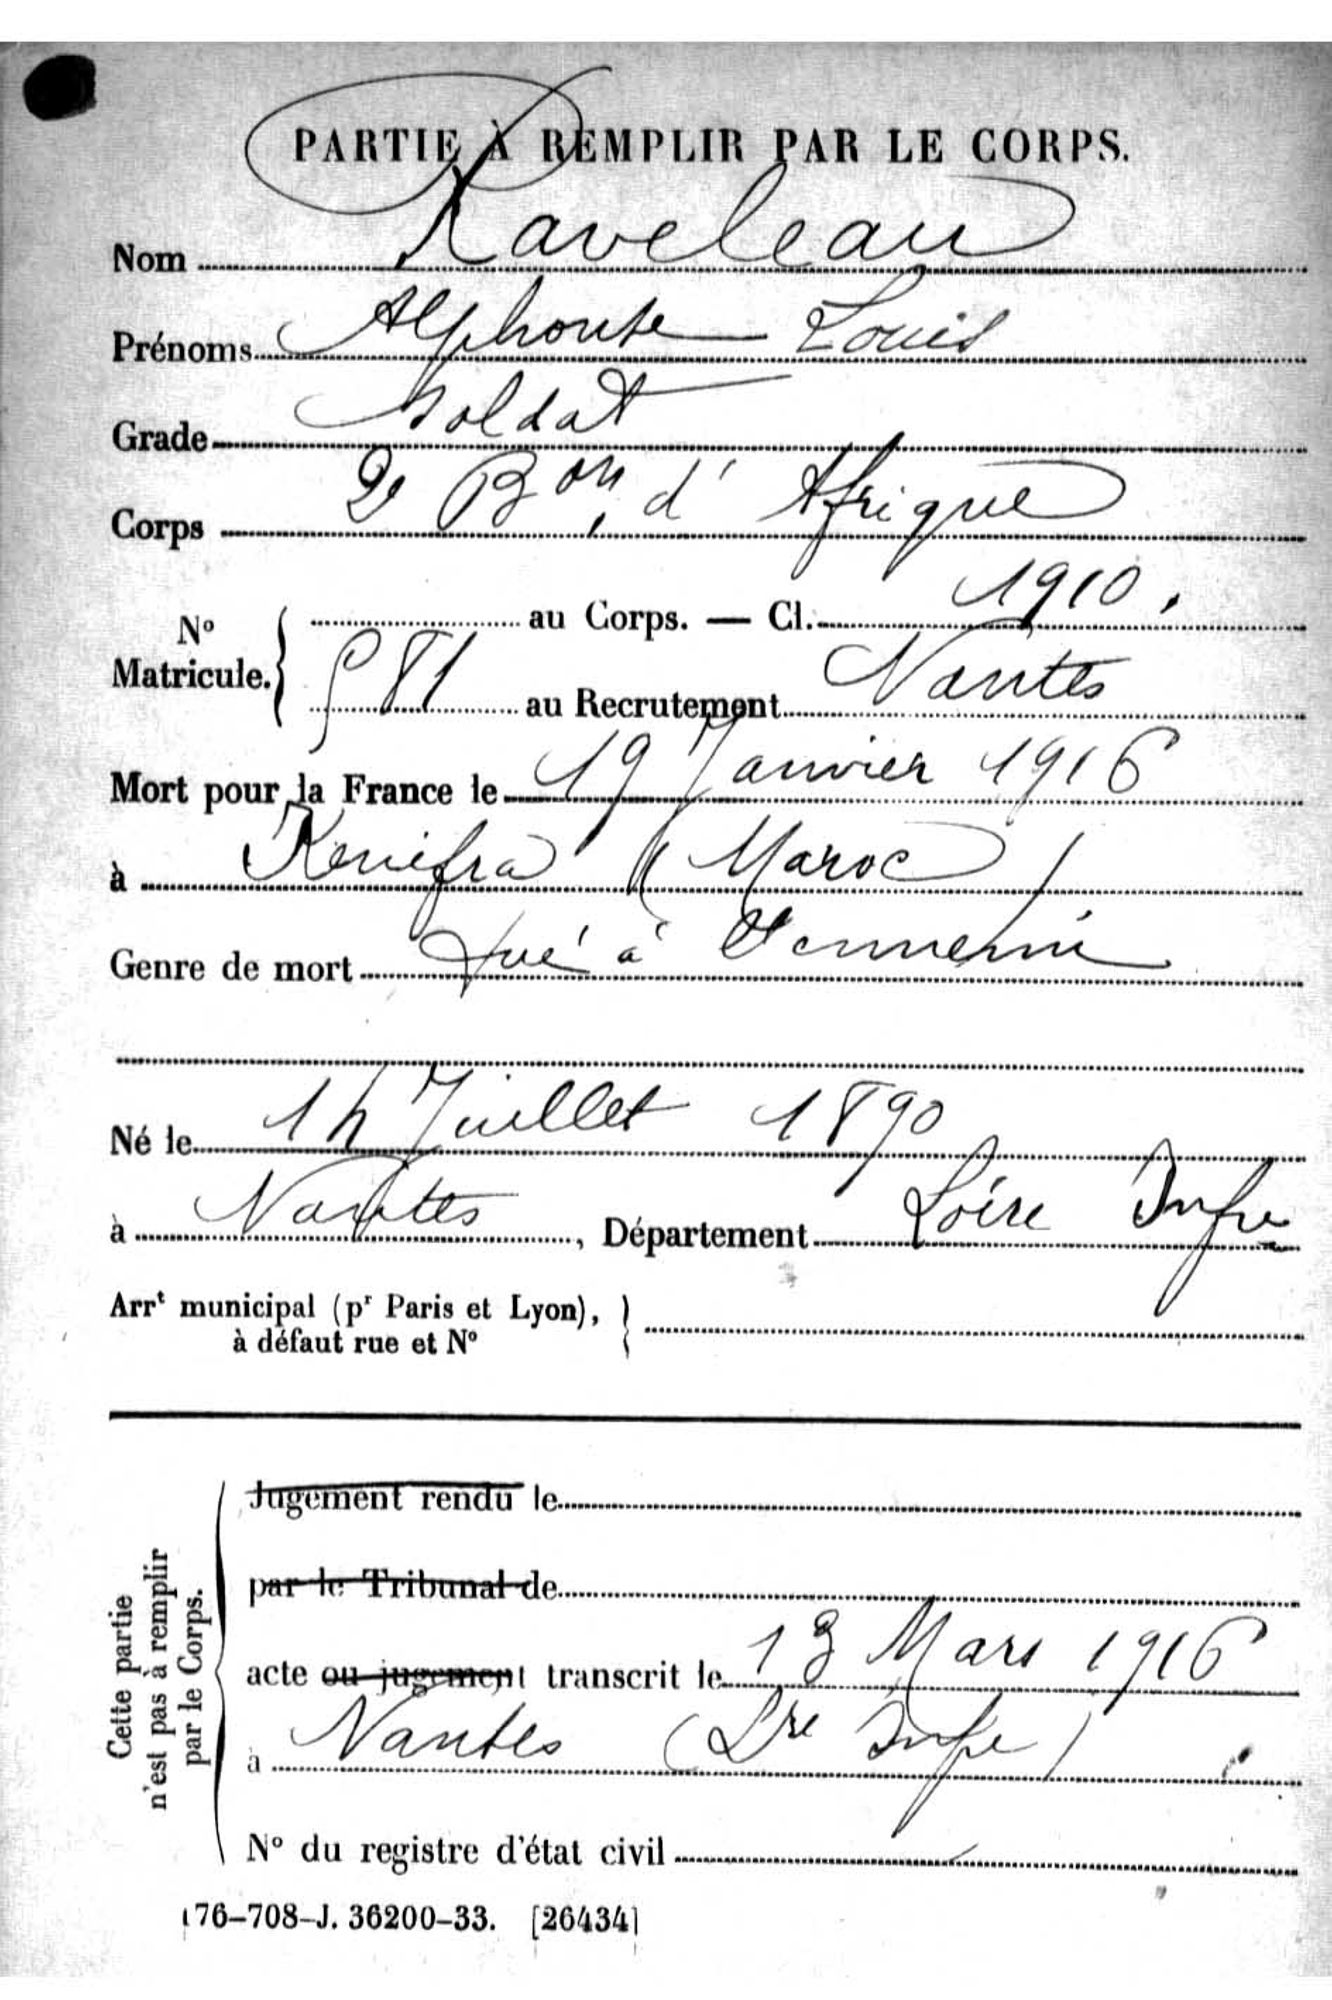 PARTIE À REMPLIR PAR LE CORPS.
Nom Raveleau
Prénoms Alphonse Louis
Grade Soldat
Corps 2e Bon d'Afrique
No Matricule. { au Corps. — Cl. 1910.
981 au Recrutement Nantes
Mort pour la France le 19 Janvier 1916
à Kenifra (Maroc)
Genre de mort Tué à l'ennemi
Né le 14 Juillet 1890
à Nantes, Département Loire Infre
Arrt municipal (pr Paris et Lyon), }
à défaut rue et No
Cette partie
n'est pas à remplir
par le Corps.
Jugement rendu le
par le Tribunal de
acte ou jugement transcrit le 13 Mars 1916
à Nantes (Lre Infre)
No du registre d'état civil
176-708-J. 36200-33. [26434]